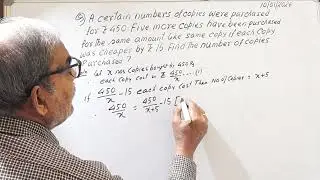 10/01/2024
Q) A certain numbers of copies were purchased
for ₹ 450 Five more copies have been purchased
for the same amount like same copy if each copy
was cheaper by ₹ 15 Find the number of copies
Purchased ?
Let x no of copies
each copy cost is ₹ 450/x ....(1)
If 450/x - 15 each copy cost Then No of copies = x+5
450/x = 450/x+5 - 15